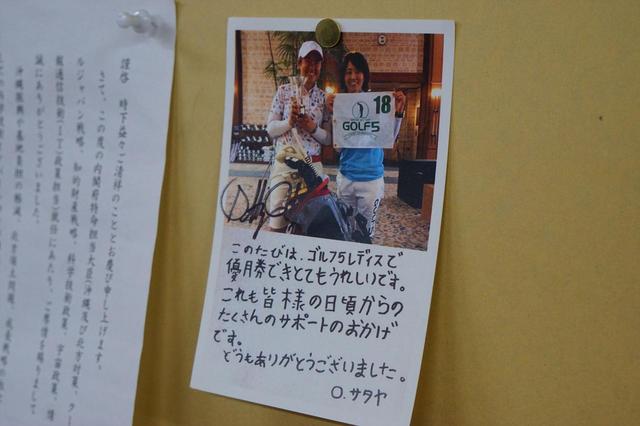 18
GOLF5
このたびは、ゴルフ5レディスで
優勝できとてもうれしいです。
これも皆様の日頃からの
たくさんのサポートのおかげ
です。
どうもありがとうございました。
O.サタヤ
謹啓 時下益々ご清祥のこととお慶び申し上げます。
さて、この度の内閣府特命担当大臣(沖縄及び北方対策、クー
ルジャパン戦略、知的財産戦略、科学技術政策、宇宙政策、情
報通信技術(IT)政策担当)就任にあたり、ご厚情を賜りまして
誠にありがとうございました。
沖縄振興や基地負担の軽減、北方領土問題、成長戦略の